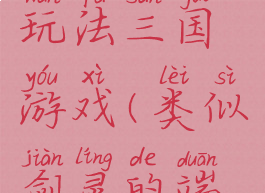 wán fǎ sān guó
玩法三国
yóu xì lèi sì
游戏(类似
jiàn líng de duān
剑灵的端